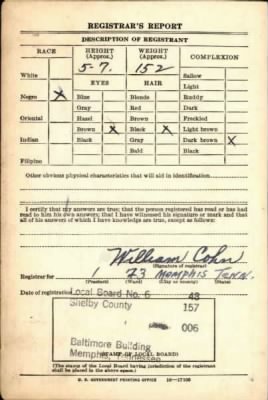 REGISTRAR'S REPORT
DESCRIPTION OF REGISTRANT
RACE HEIGHT (Approx.) WEIGHT (Approx.) COMPLEXION
5-7. 152
White Sallow
EYES HAIR Light
Negro X Blue Blonde Ruddy
Gray Red Dark
Oriental Hazel Brown Freckled
Brown X Black X Light brown
Indian Black Gray Dark brown X
Bald Black
Filipino
Other obvious physical characteristics that will aid in identification
I certify that my answers are true; that the person registered has read or has had
read to him his own answers; that I have witnessed his signature or mark and that
all of his answers of which I have knowledge are true, except as follows:
William Cohn
(Signature of registrar)
Registrar for 1 73 MEMPHIS TENN.
(Precinct) (Ward) (City or county) (State)
Date of registration
Local Board No. 6 48
Shelby County 157
006
Baltimore Building
Memphis, Tennessee
(STAMP OF LOCAL BOARD)
(The stamp of the Local Board having jurisdiction of the registrant
shall be placed in the above space.)
U. S. GOVERNMENT PRINTING OFFICE 16-17106